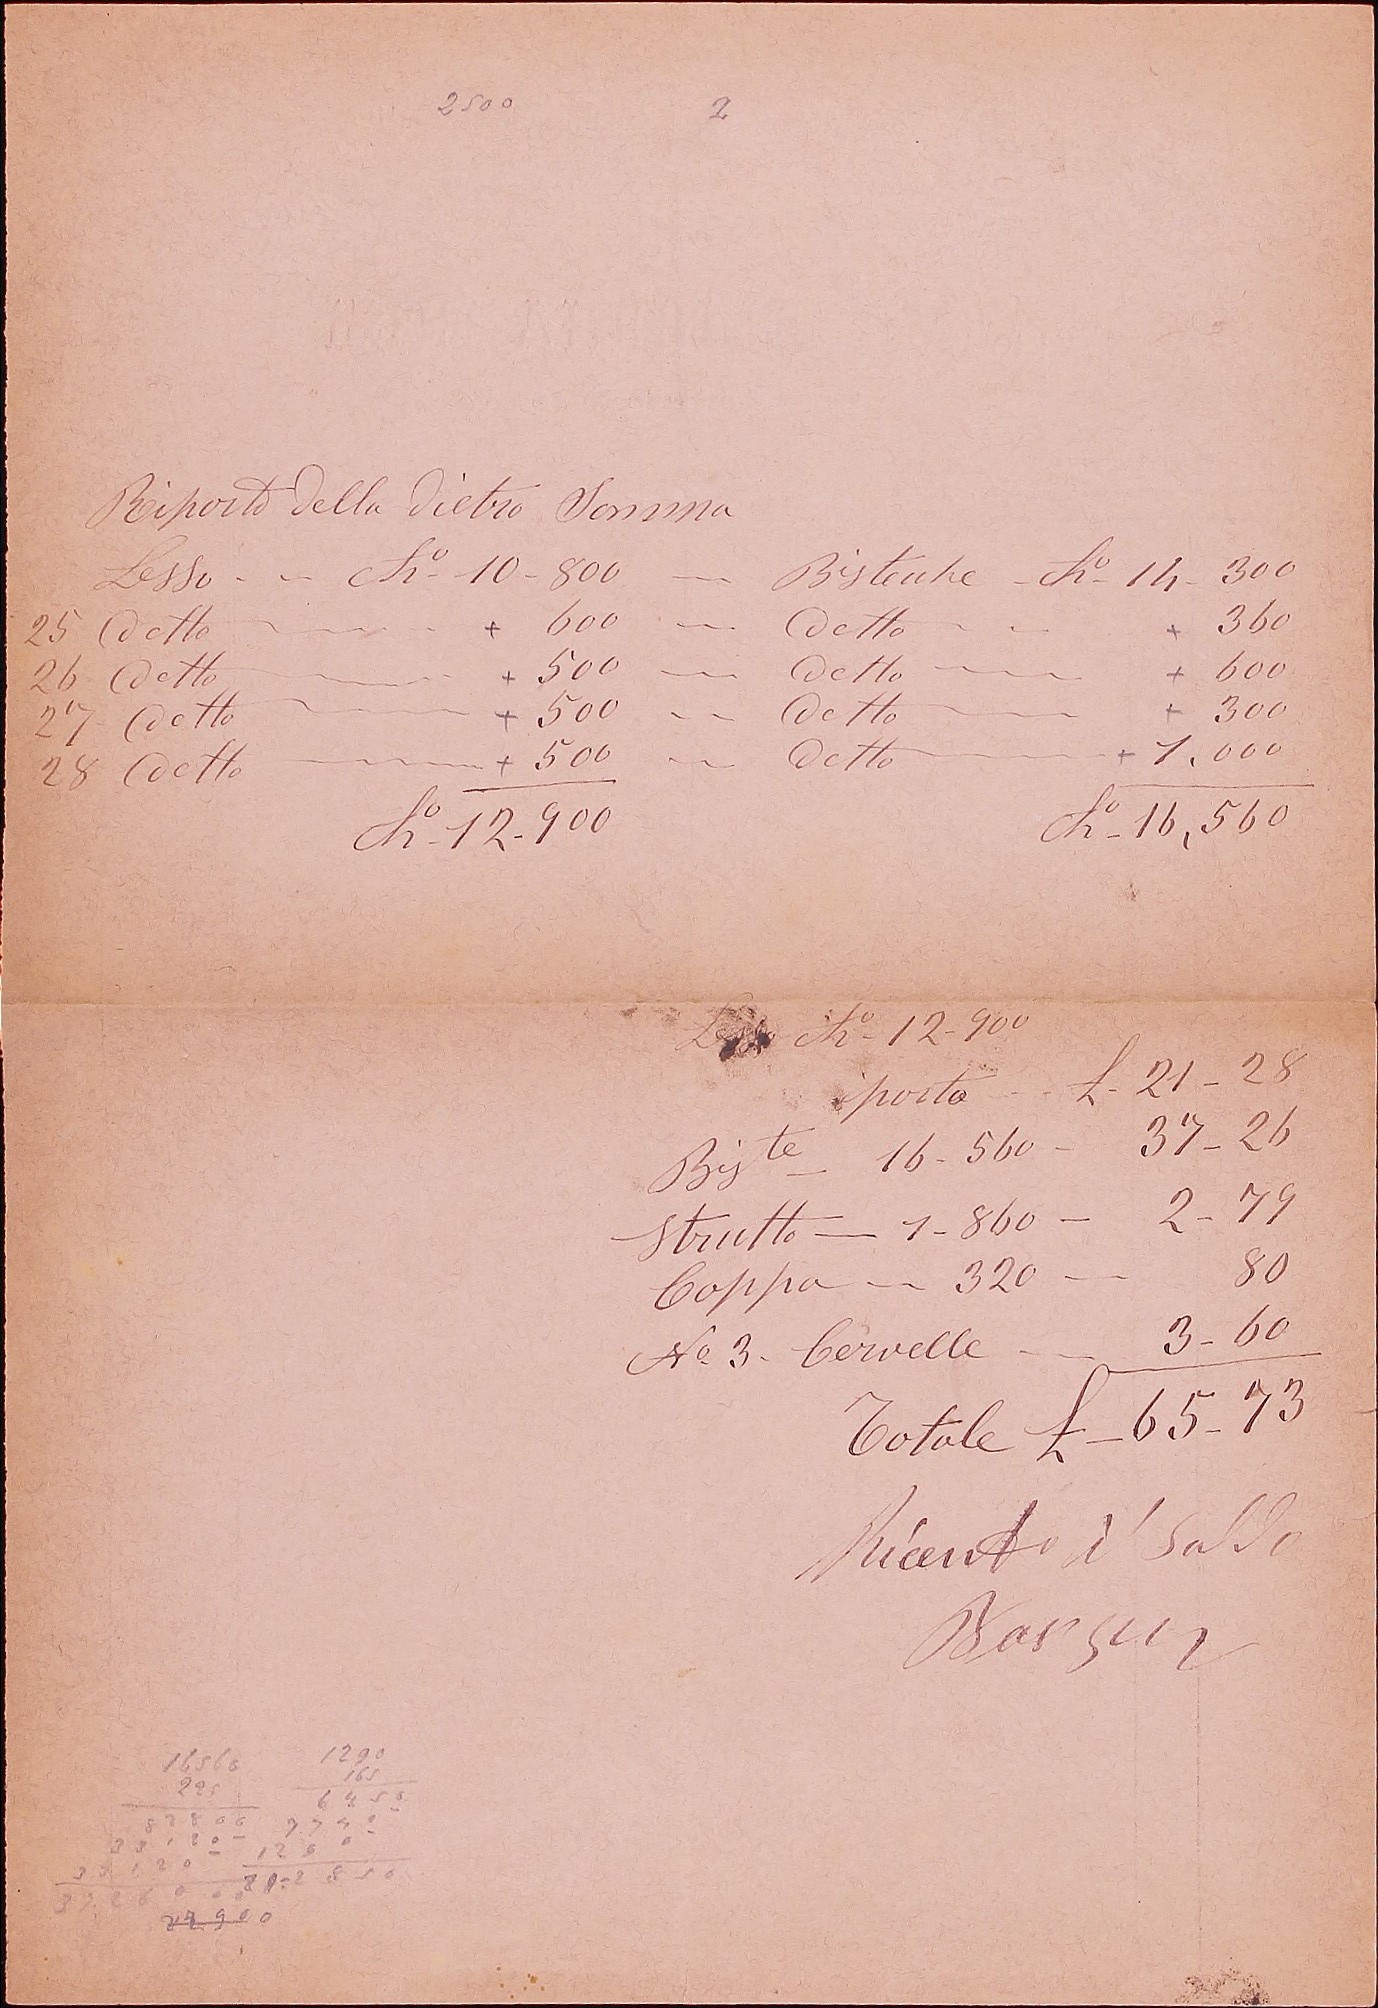 2500 2
Riporto della dietro Somma
Lesso - - Ch.º 10-800 — Bisteche - Ch.º 14-300
25 Detto + 600 — Detto - - + 360
26 Detto + 500 — Detto + 600
27 Detto + 500 - - Detto + 300
28 Detto + 500 — Detto + 1,000
Ch.º-12-900 Ch.º-16,560
Lesso Ch.º-12-900
porta - - £-21-28
Biste - 16-560 - 37-26
Strutto — 1-860 - 2-79
Coppa — 320 — 80
Nº 3- Cervelle — 3-60
Totale £-65-73
Ricevuto il Saldo
16560 1290
225 165
82800 6450
33120- 7740-
33120 1290
3726000 212850